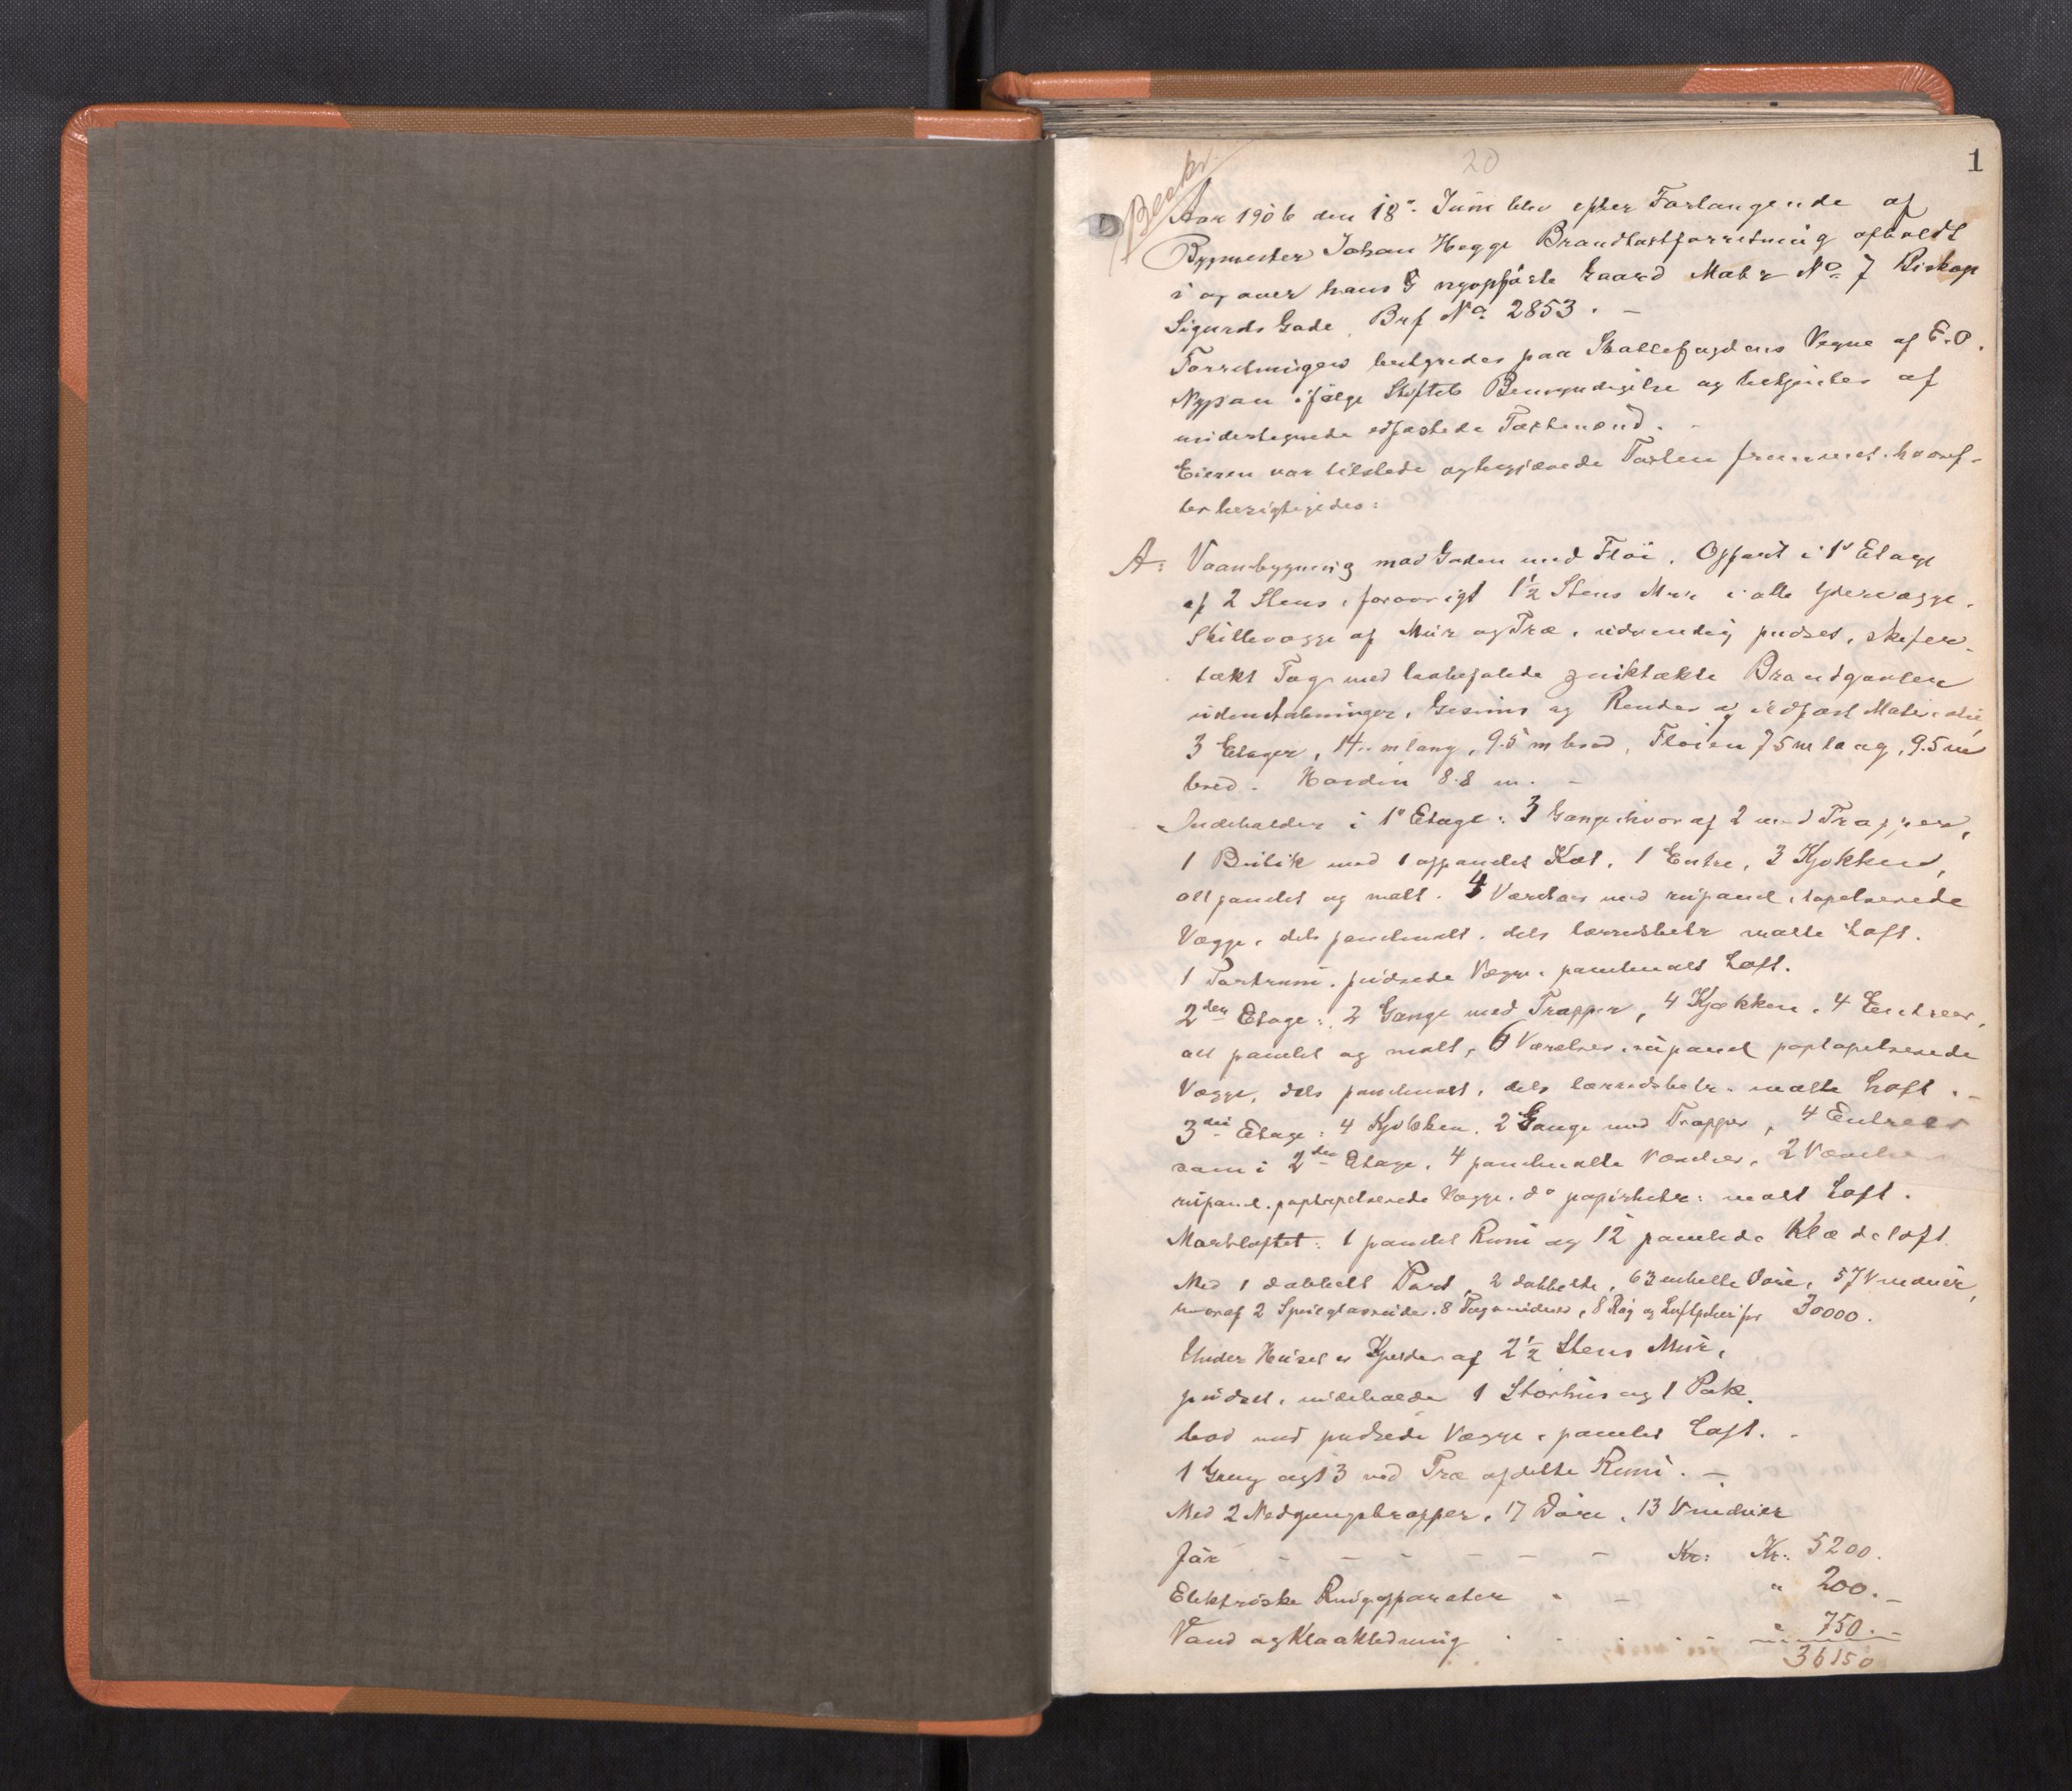 20
1
Beskr.
Aar 1906 den 18de Juni blev efter Forlangende af
Bygmester Johan Hegge Brandtaxtforretning afholdt
i og over hans nyopførte Gaard Matr No 7 Biskop
Sigurds Gade, Brf No 2853. -
Forretningen bestyredes paa Skattefogdens Vegne af E. O.
Nypan ifølge Stiftets Bemyndigelse og betjentes af
undertegnede edfæstede Taxtmænd. -
Eieren var tilstede og begjærede Taxten fremmet, hvoref-
ter besigtigedes:
A: Vaanbygning mod Gaden med Fløi. Opført i 1ste Etage
af 2 Stens, forøvrigt 1½ Stens Mur i alle Ydervægge.
Skillevægge af Mur og Træ, udvendig pudset, skifer-
tækt Tag med zinktækte Brandgavlen
Gesims og Render af ildfast Materiale,
3 Etager, 14.. m lang, 9.5 m bred, Fløien 7.5 m lang, 9.5 m
bred. Høiden 8.8 m. -
Indeholder i 1ste Etage: 3 Gange hvoraf 2 med Trapper,
1 Butik med 1 oppanelet Kot, 1 Entre, 3 Kjøkken,
alt panelet og malt. 4 Værelser med rupanel, tapetserede
Vægge, dels panelmalt, dels lærredsbetr. malte Loft.
1 Portrum, pudsede Vægge, panelmalt Loft.
2den Etage: 2 Gange med Trapper, 4 Kjøkken, 4 Entreer,
alt panelet og malt, 6 Værelser, rupanel paptapetserede
Vægge, dels panelmalt, dels lærredsbetr. malte Loft. -
3die Etage: 4 Kjøkken, 2 Gange med Trapper, 4 Entreer
som i 2den Etage, 4 panelmalte Værelser, 2 Værelser
rupanel. paptapetserede Vægge. do papirbetr. malt Loft.
Mørkloftet: 1 panelet Rum og 12 panelede Klædeloft.
Med 1 dobbelt Port, 2 dobbelte, 63 enkelte Døre, 57 Vinduer,
hvoraf 2 Speilglasruider, 8 Tagvinduer, 8 Røg og Luftpiber for 30000.
Under Huset er Kjelder af 2½ Stens Mur,
pudset, indeholder 1 Storhus og 1 Pak-
bod med pudsede Vægge, panelet Loft. -
1 Gang og 13 ved Træ afdelte Rum. -
Med 2 Nedgangstrapper, 17 Døre, 13 Vinduer
for - - - - - - Kr: Kr: 5200.
Elektriske Ringapparater - - " 200. -
Vand og Kloakledning . . . . . " 750. -
36150